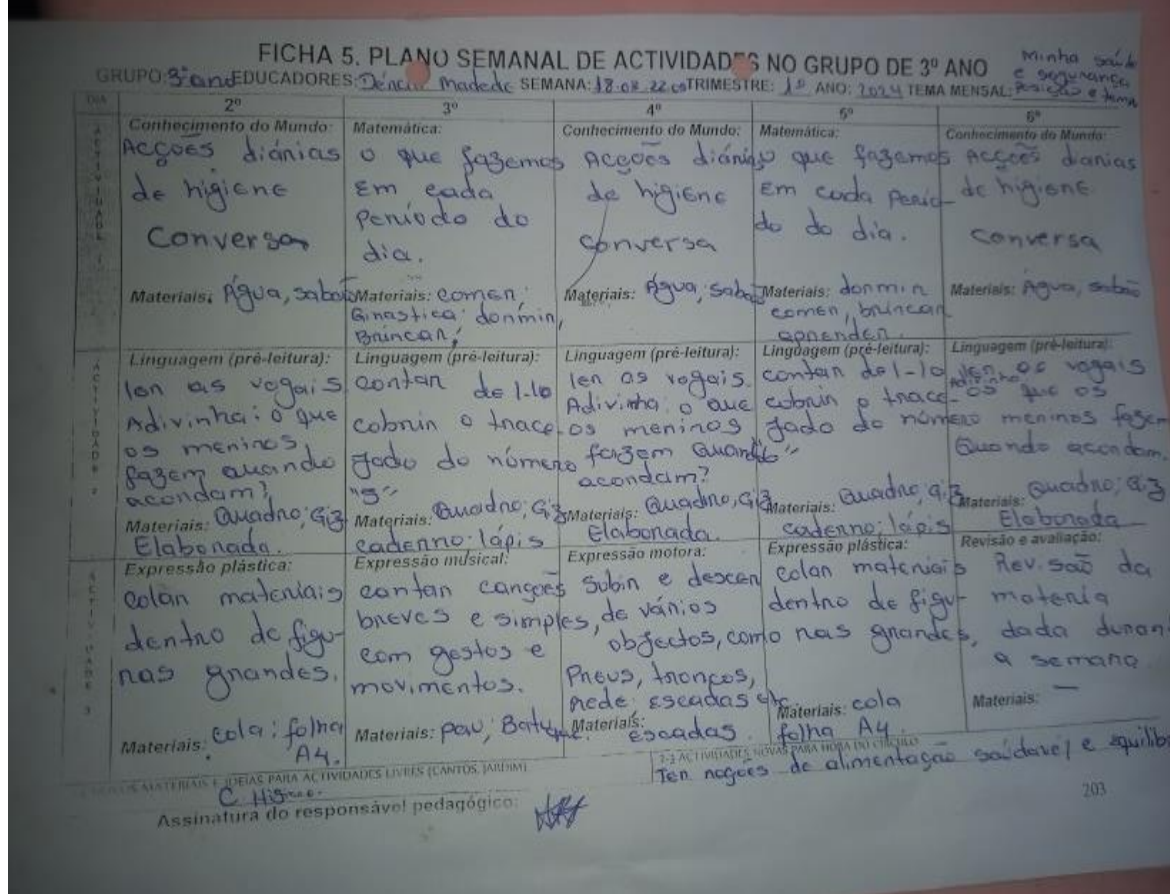 FICHA 5. PLANO SEMANAL DE ACTIVIDADES NO GRUPO DE 3º ANO
GRUPO: 3º ano EDUCADORES: Madede SEMANA: 18.03. 22.03 TRIMESTRE: 1º ANO: 2024 TEMA MENSAL: Minha saúde
e segurança
Posição e tema
DIA
2º
3º
4º
5º
6º
ACTIVIDADE 1
Conhecimento do Mundo:
Acções diárias
de higiene
Conversa
Materiais: Água, sabão
Matemática:
o que fazemos
Em cada
Período do
dia.
Materiais: comer;
Ginastica; dormir,
Brincar;
Conhecimento do Mundo:
Acções diárias
de higiene
conversa
Materiais: Água, sabão
Matemática:
o que fazemos
Em cada Perío-
do do dia.
Materiais: dormir
comer, brincar
aprender.
Conhecimento do Mundo:
Acções diarias
de higiene
conversa
Materiais: Água, sabão
ACTIVIDADE 2
Linguagem (pré-leitura):
ler as vogais
Adivinha: o que
os meninos
fazem quando
acordam?
Materiais: Quadro; Giz
Elaborada.
Linguagem (pré-leitura):
contar de 1-10
cobrir o trace-
jado do número
"5"
Materiais: Quadro; Giz
caderno; lápis
Linguagem (pré-leitura):
ler as vogais
Adivinha: o que
os meninos
fazem quando
acordam?
Materiais: Quadro, Giz
Elaborada.
Linguagem (pré-leitura):
contar de 1-10
cobrir o trace-
jado do número
Materiais: Quadro; giz
caderno; lápis
Linguagem (pré-leitura):
ler as vogais
Adivinha os que os
meninos fazem
Quando acordam.
Materiais: Quadro; giz
Elaborada
ACTIVIDADE 3
Expressão plástica:
colar materiais
dentro de figu-
ras grandes.
Materiais: cola; folha
A4.
Expressão musical:
cantar canções
breves e simples,
com gostos e
movimentos.
Materiais: pau; Batuque.
Expressão motora:
Subir e descer
de vários
objectos, como
Pneus, troncos,
rede, escadas etc
Materiais: escadas.
Expressão plástica:
colar materiais
dentro de figu-
ras grandes,
Materiais: cola
folha A4.
Revisão e avaliação:
Revisão da
materia
dada duran
a semana
Materiais: —
MATERIAIS E IDEIAS PARA ACTIVIDADES LIVRES (CANTOS, JARDIM)
2-3 ACTIVIDADES NOVAS PARA HORA DO CÍRCULO
Ter noções de alimentação saúdavel e equilib
Assinatura do responsável pedagógico:
203